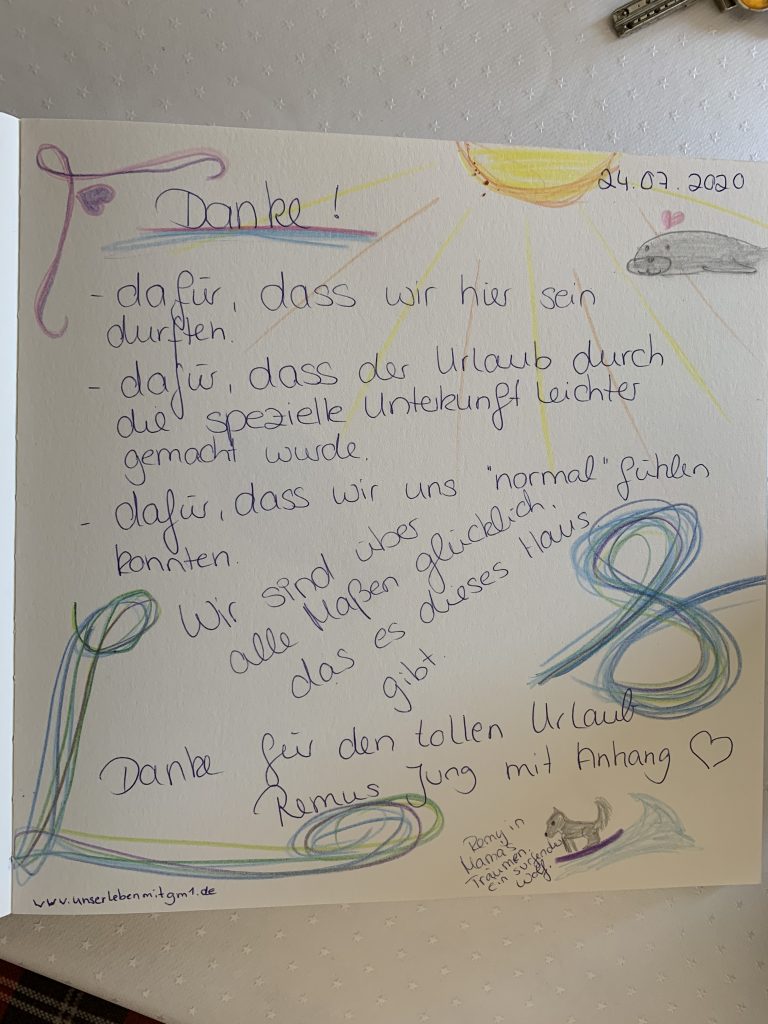 24.07.2020
Danke!
- dafür, dass wir hier sein
durften.
- dafür, dass der Urlaub durch
die spezielle Unterkunft leichter
gemacht wurde.
- dafür, dass wir uns "normal" fühlen
konnten.
Wir sind über
alle Maßen glücklich,
das es dieses Haus
gibt.
Danke für den tollen Urlaub
Remus Jung mit Anhang ♡
Romy in
Mama's
Träumen,
ein surfender
Wolf
www.unserlebenmitgm1.de